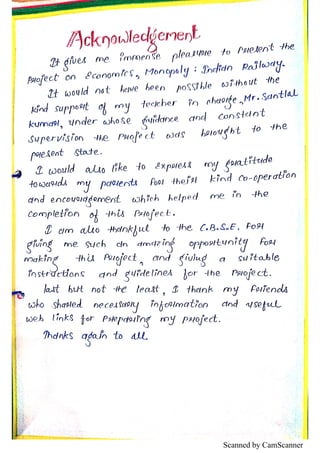 Acknowledgement
It gives me immense pleasure to present the
project on Economics, Monopoly: Indian Railway.
It would not have been possible without the
kind support of my teacher in charge, Mr. Santlal
Kumar, under whose guidance and constant
supervision the project was brought to the
present state.
I would also like to express my gratitude
towards my parents for their kind co-operation
and encouragement which helped me in the
completion of this project.
I am also thankful to the C.B.S.E. for
giving me such an amazing opportunity for
making this project, and giving a suitable
instructions and guidelines for the project.
last but not the least, I thank my friends
who shared necessary information and useful
web links for preparing my project.
Thanks again to all.
Scanned by CamScanner